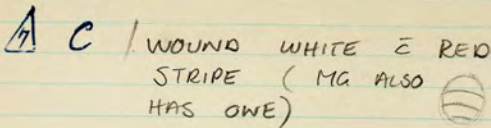 7 C / WOUND WHITE c̄ RED
STRIPE ( MG ALSO
HAS OWE)